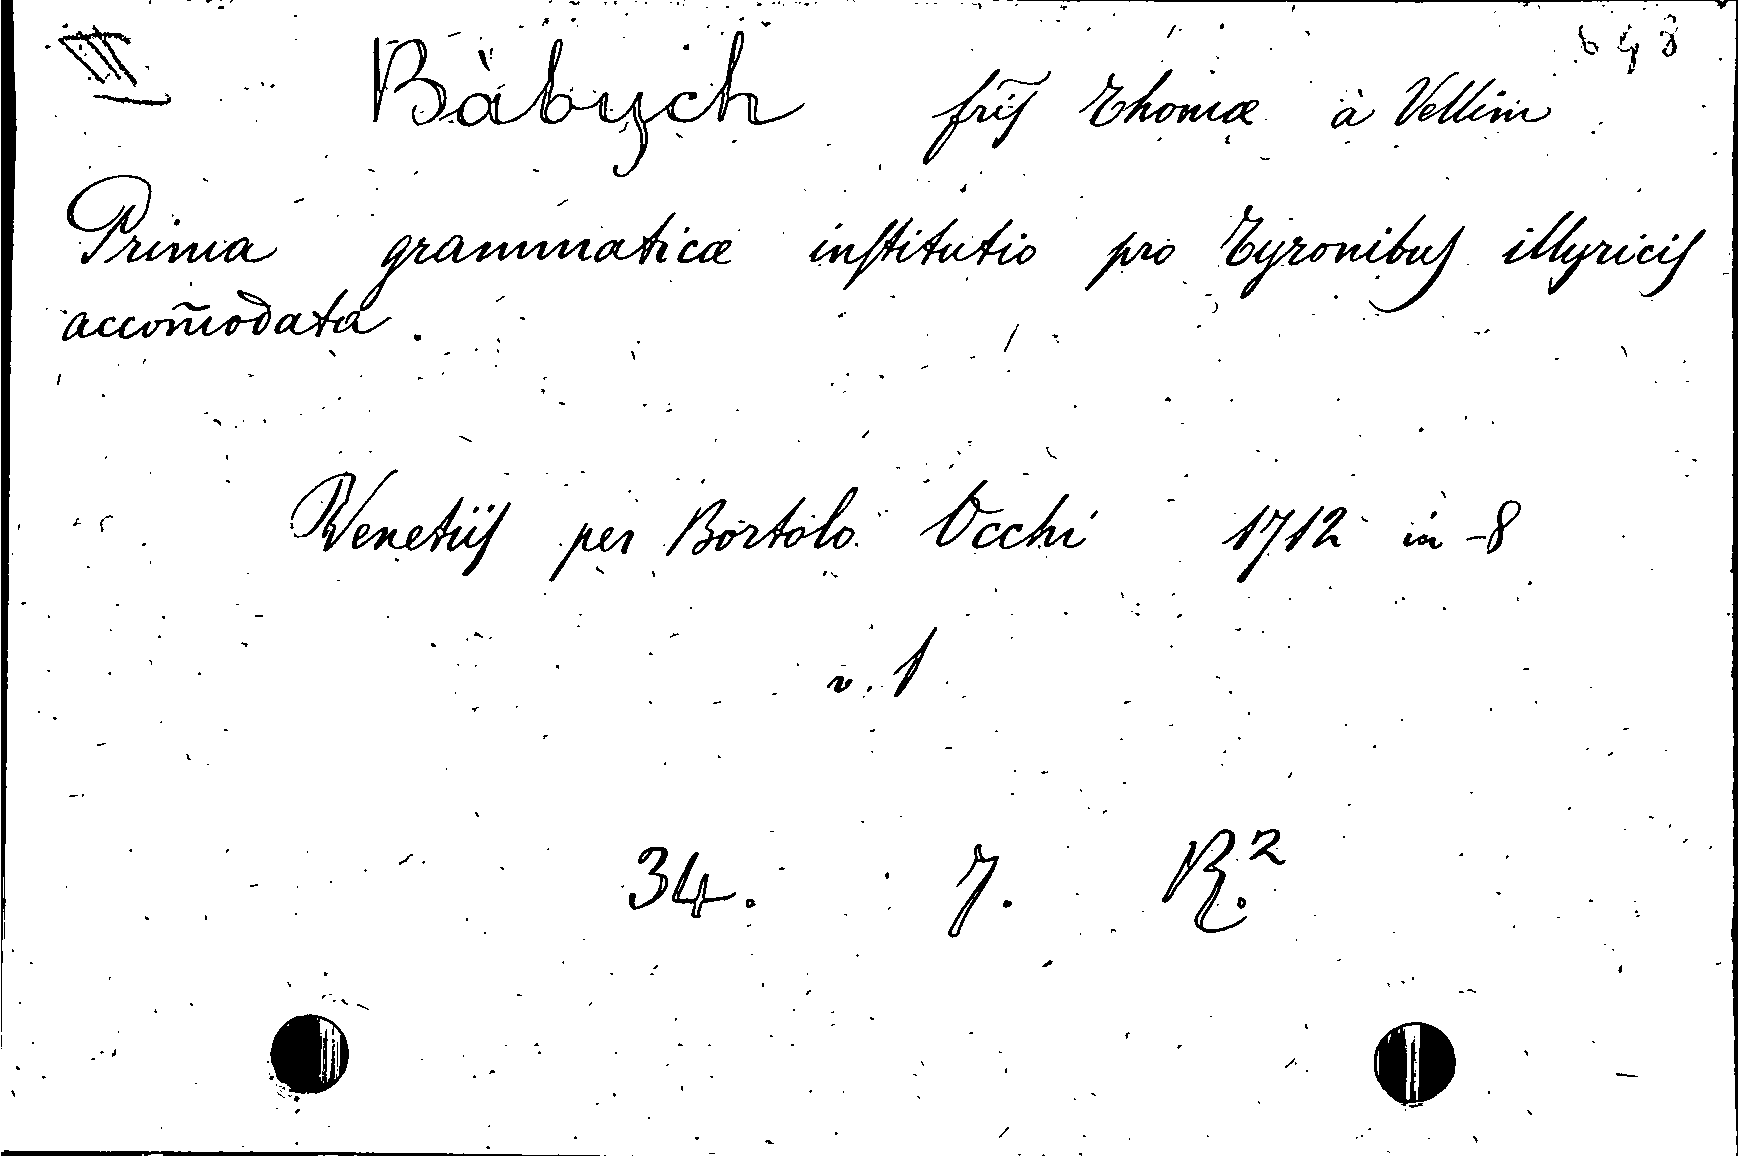 III Bàbych fr̃is Thomæ à Vellim 698
Prima grammaticæ institutio pro Tyronibus illyricis
accom̃odata.
Venetiis per Bortolo Occhi 1712 in-8
v. 1
34. 7. R.²